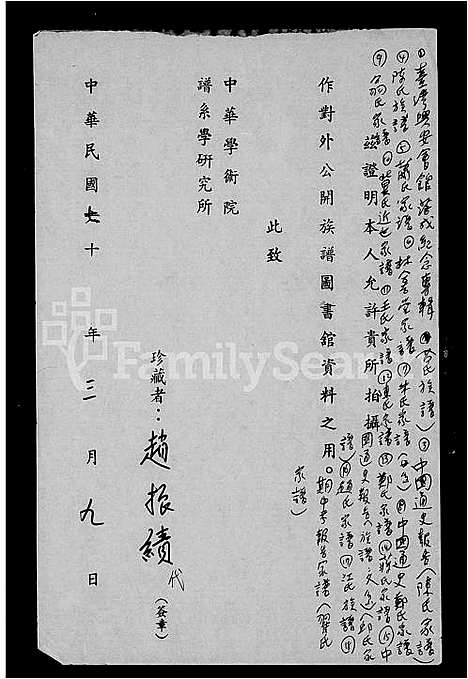 ①臺灣興安會館落成紀念專輯②蘇氏族譜)③中國通史報告(陳氏家譜)
④陳氏族譜⑤蕭氏家譜⑥林善堂家譜⑦朱氏家譜⑧中國通史鄭氏家譜
⑨翁氏家譜⑩葉氏近世家譜⑪王氏家譜⑫陳氏家譜⑬鄭氏家譜⑭蔣氏家譜⑮中
國通史報告(族譜)邱氏家
譜)⑯趙氏家譜⑰江氏族譜⑱
期中考報告家譜(羅氏
家譜)
茲證明本人允許貴所拍攝
作對外公開族譜圖書館資料之用。
此致
中華學術院
譜系學研究所
珍藏者：趙振績代(簽章)
中華民國七十年三月九日
FamilySear